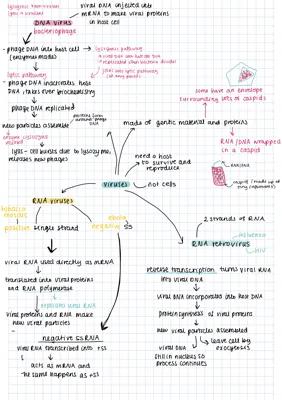 viral DNA injected into
mRNA to make viral proteins
in host cell
DNA virus
bacteriophage
- phage DNA into host cell
(enzymes made)
lysogenic pathway
lytic pathway
- phage DNA inactivates host
DNA, takes over biochemistry
phage DNA replicated
new particles assemble
proteins form
around phage
DNA
lysis - cell bursts due to lysozyme,
releases new phages
some have an envelope
surrounding sets of capsids
made of genetic material and proteins
RNA/DNA wrapped
in a capsid
RNA/DNA
need a host
to survive and
reproduce
viruses
not cells
RNA viruses
tobacco
mosaic
positive
single strand
ebola
negative
ss
2 strands of RNA
RNA retrovirus
HIV
viral RNA used directly as mRNA
translated into viral proteins
and RNA polymerase
replicates viral RNA
viral proteins and RNA make
new viral particles
negative ssRNA
viral RNA transcribed into +ss
acts as mRNA and
the same happens as +ss
reverse transcription turns viral RNA
into viral DNA
viral DNA incorporated into host DNA
protein synthesis of viral proteins
new viral particles assembled
leave cell by
exocytosis
viral DNA
still in nucleus so
process continues